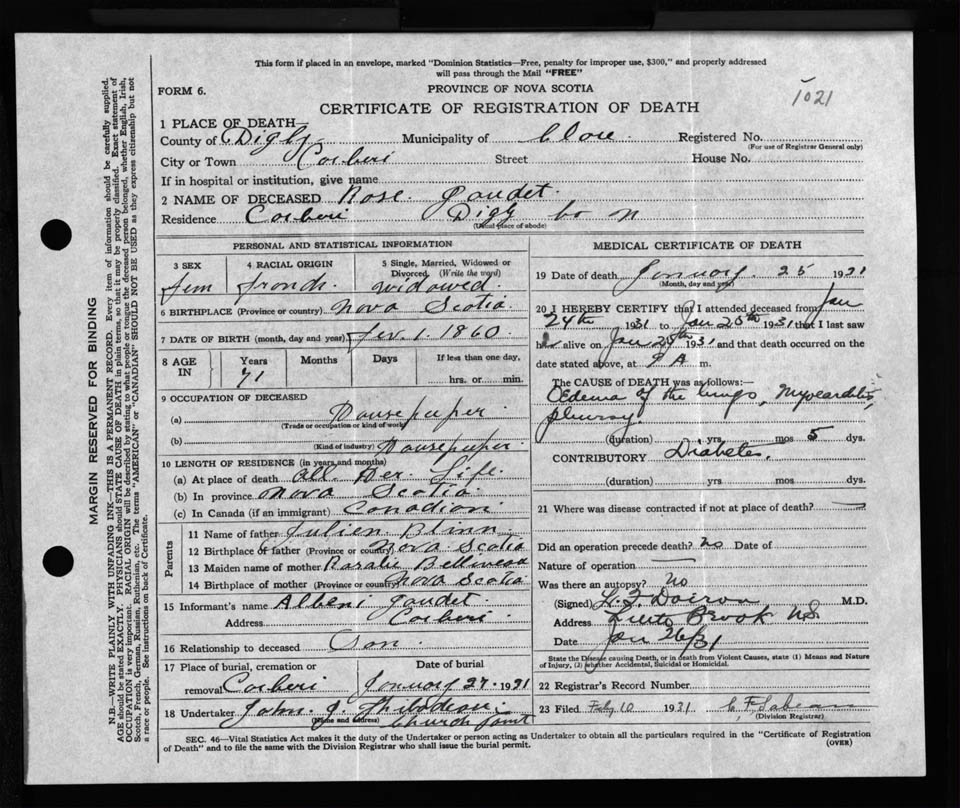 This form if placed in an envelope, marked "Dominion Statistics—Free, penalty for improper use, $300," and properly addressed
will pass through the Mail "FREE"
FORM 6.
PROVINCE OF NOVA SCOTIA
1021
CERTIFICATE OF REGISTRATION OF DEATH
1 PLACE OF DEATH—
County of Digby Municipality of Clare Registered No.
(For use of Registrar General only)
City or Town Corberi Street House No.
If in hospital or institution, give name
2 NAME OF DECEASED Rose Gaudet
Residence Corberi Digy Co N
(Usual place of abode)
PERSONAL AND STATISTICAL INFORMATION
3 SEX 4 RACIAL ORIGIN 5 Single, Married, Widowed or Divorced. (Write the word)
fem french widowed
6 BIRTHPLACE (Province or country) Nova Scotia
7 DATE OF BIRTH (month, day and year) fev. 1. 1860
8 AGE IN Years Months Days If less than one day,
71 hrs. or min.
9 OCCUPATION OF DECEASED
(a) Housekeeper
(Trade or occupation or kind of work)
(b) Housekeeper
(Kind of industry)
10 LENGTH OF RESIDENCE (in years and months)
(a) At place of death all Her Life
(b) In province Nova Scotia
(c) In Canada (if an immigrant) Canadian
Parents
11 Name of father Julien Blinn
12 Birthplace of father (Province or country) Nova Scotia
13 Maiden name of mother
14 Birthplace of mother (Province or country) Nova Scotia
15 Informant's name Albeni Gaudet
Address Corberi
16 Relationship to deceased Son
17 Place of burial, cremation or removal Corberi
Date of burial January 27 1931
18 Undertaker John J. Thibodeau
(Name and address) Church Point
MEDICAL CERTIFICATE OF DEATH
19 Date of death January 25 1931
(Month, day and year)
20 I HEREBY CERTIFY that I attended deceased from Jan
24th 1931 to Jan 25th 1931 that I last saw
her alive on Jan 25th 1931 and that death occurred on the
date stated above, at 9 A m.
The CAUSE OF DEATH was as follows:—
Œdema of the lungs, Myocarditis,
pleurisy
(duration) yrs. mos 5 dys.
CONTRIBUTORY Diabetes.
(duration) yrs mos dys.
21 Where was disease contracted if not at place of death?
Did an operation precede death? No Date of
Nature of operation —
Was there an autopsy? No
(Signed) Doiron M.D.
Address Brook N.S.
Date Jan 26/31
State the Disease causing Death, or in death from Violent Causes, state (1) Means and Nature
of Injury, (2) whether Accidental, Suicidal or Homicidal.
22 Registrar's Record Number
23 Filed Feby 10 1931
(Division Registrar)
SEC. 46—Vital Statistics Act makes it the duty of the Undertaker or person acting as Undertaker to obtain all the particulars required in the "Certificate of Registration
of Death" and to file the same with the Division Registrar who shall issue the burial permit.
(OVER)
MARGIN RESERVED FOR BINDING
N.B.—WRITE PLAINLY WITH UNFADING INK—THIS IS A PERMANENT RECORD. Every item of information should be carefully supplied.
AGE should be stated EXACTLY. PHYSICIANS should STATE CAUSE OF DEATH in plain terms, so that it may be properly classified. Exact statement of
OCCUPATION is very important. RACIAL ORIGIN will be described by stating to what people or tongue the deceased person belonged, whether English, Irish,
Scotch, French, German, Russian, Ruthenian, etc. The terms "AMERICAN" or "CANADIAN" SHOULD NOT BE USED as they express citizenship but not
a race or people. See instructions on back of Certificate.